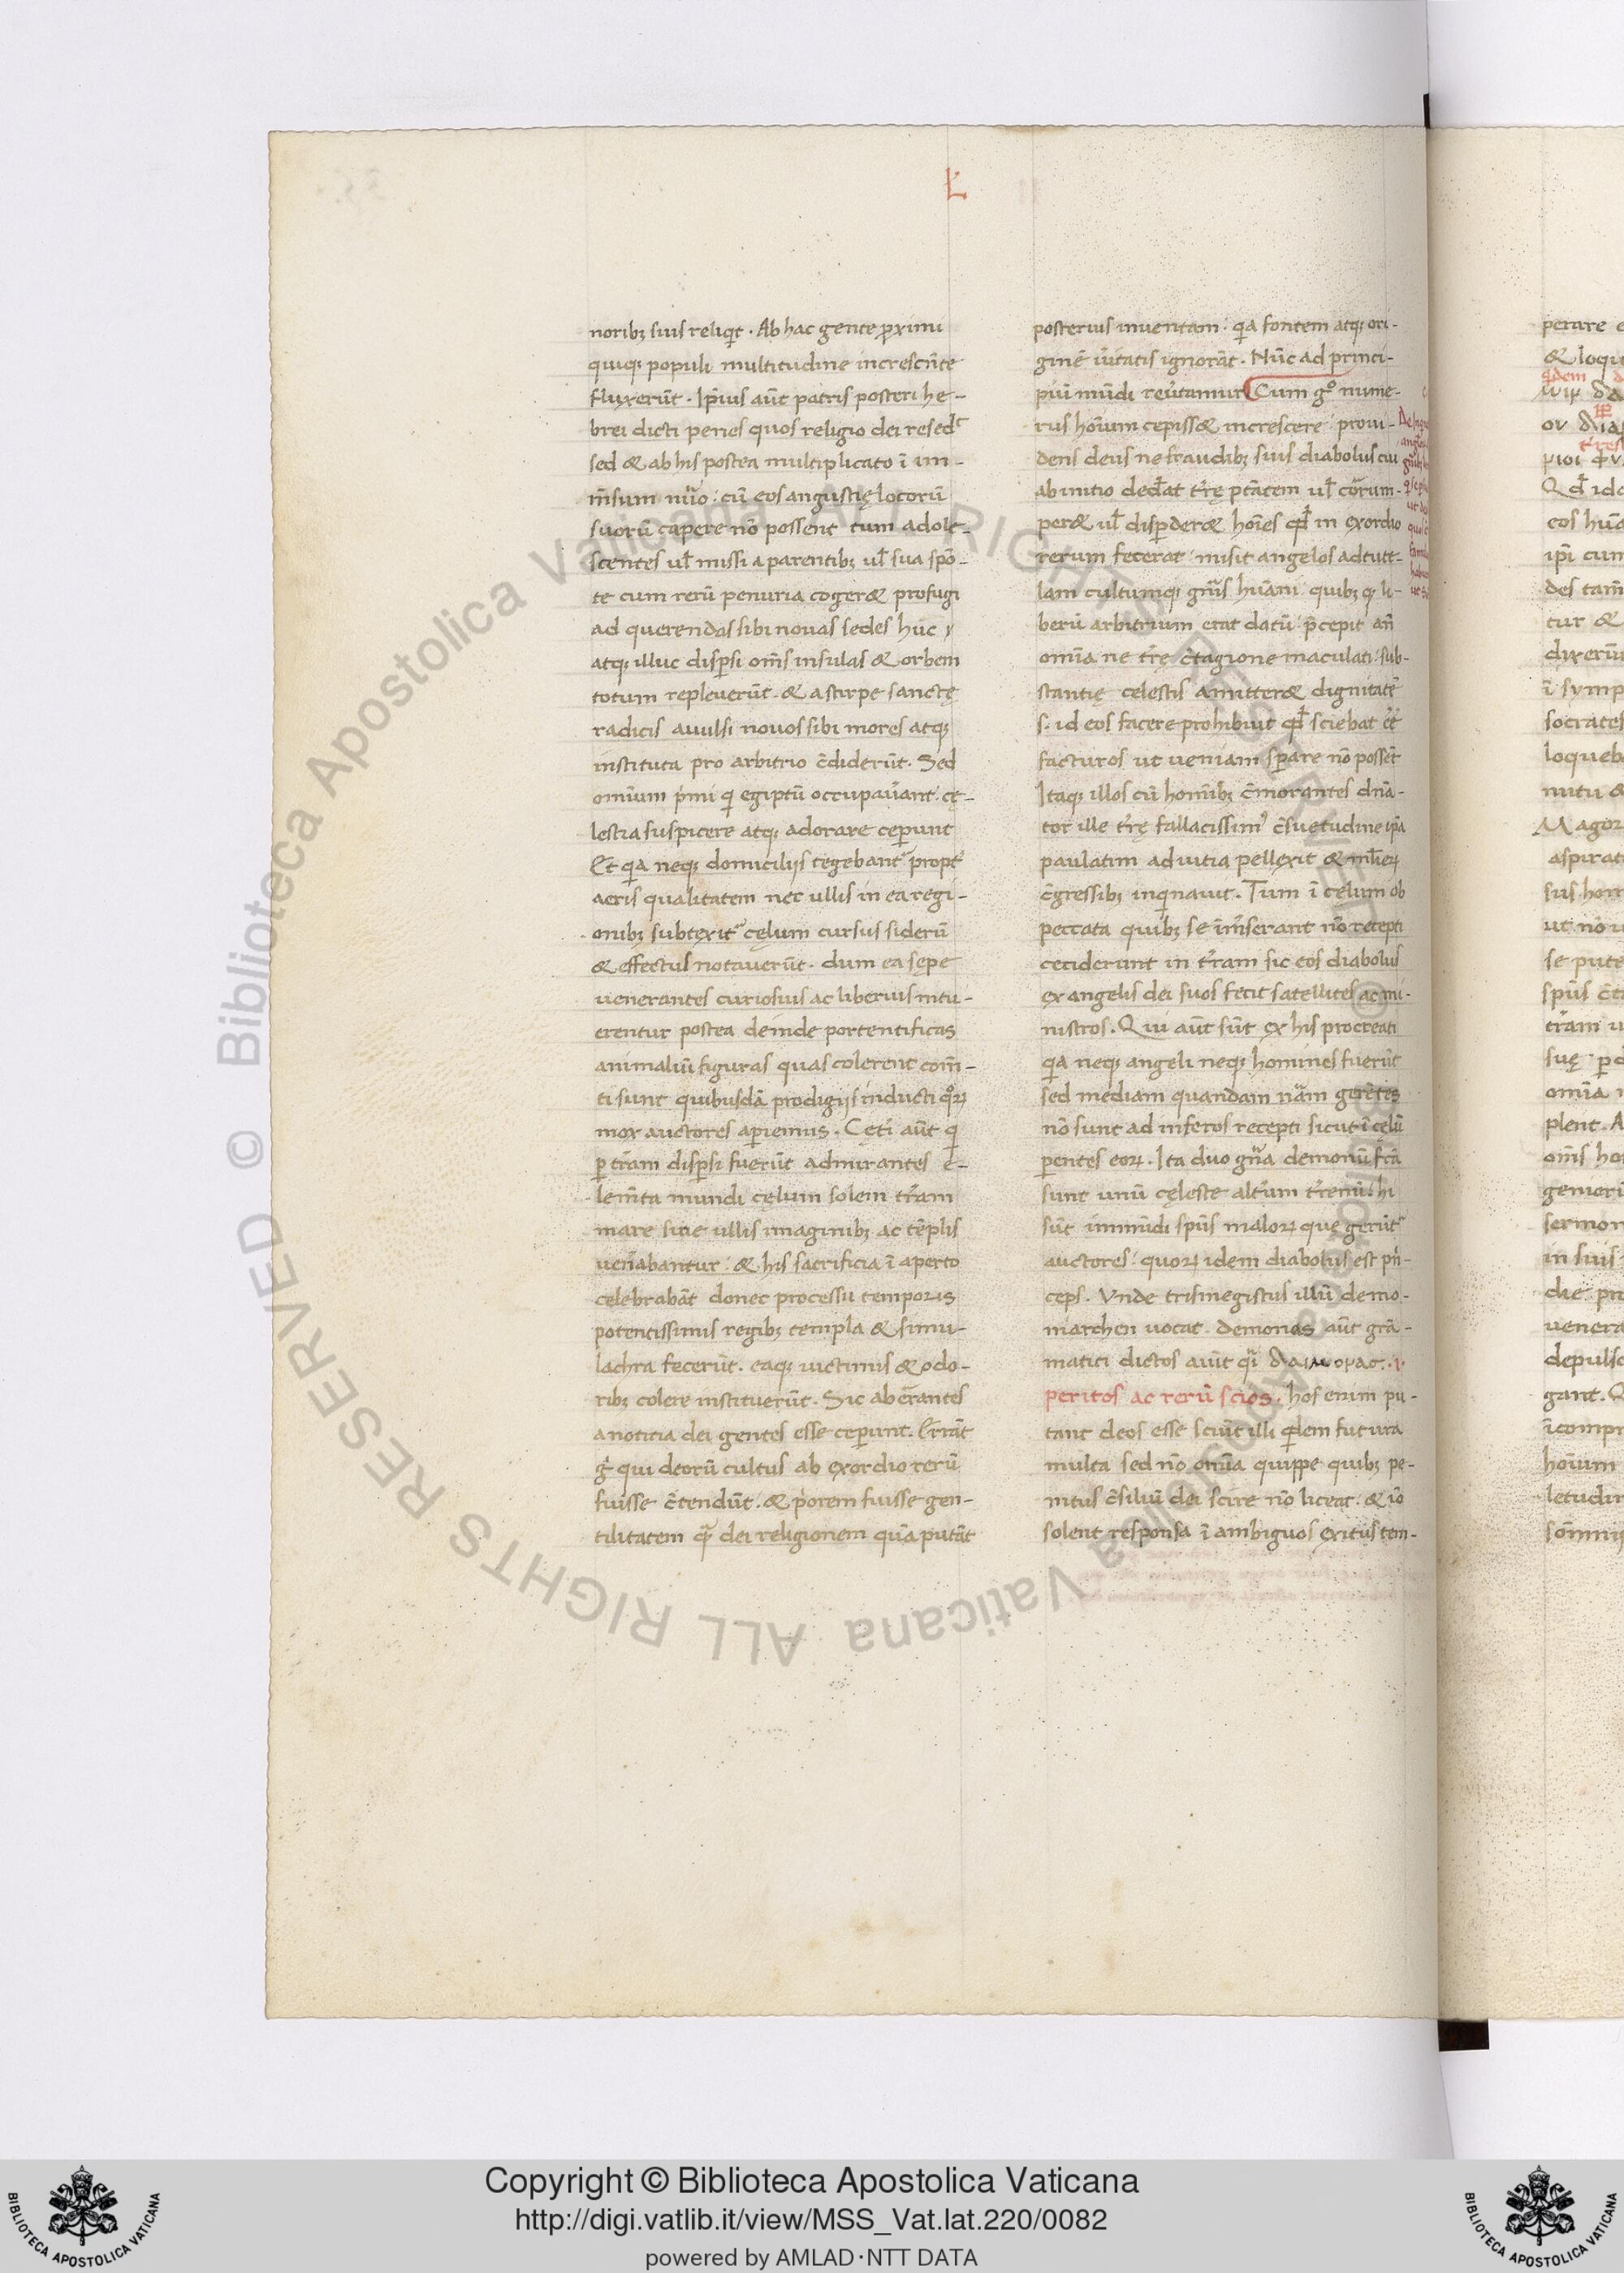 Ł
noribꝫ suis reliqͥt · Ab hac gente ꝓximi
quiqꝫ populi multitudine increscn̄te
fluxerūt · Ip̄ius aūt patris posteri he-
brei dicti penes quos religio dei resedͭ
sed & ab his postea multiplicato ī im-
m̄sum nūo : cū eos angustię locorū
suorū capere nō possent tum adole-
scentes ul̄ missi a parentibꝫ ul̄ sua spō-
te cum rerū penuria coger& profugi
ad querendas sibi nouas sedes huc
atqꝫ illuc disꝑsi om̄s insulas & orbem
totum repleuerūt · & a stirpe sanctę
radicis auulsi nouos sibi mores atqꝫ
instituta pro arbitrio c̄diderūt · Sed
omīum pͥmi qͥ egiptū occupau̓ant : ce-
lestia suspicere atqꝫ adorare ceꝑunt
Et qͥa neqꝫ domicilijs tegebant᷑ propt̓
aeris qualitatem nec ullis in ea regi-
onibꝫ subtexit᷑ cęlum cursus siderū
& effectus notauerūt · dum ea sepe
uenerantes curiosius ac liberius intu-
erentur postea deinde portentificas
animaliū figuras quas colerent com̄-
ti sunt quibusdā prodigijs inducti qͦꝝ
mox auctores aꝑiemus · Cęti aūt qͥ
ꝑ tr̄am disꝑsi fuerūt admirantes e-
lem̄ta mundi cęlum solem tr̄am
mare sine ullis imaginibꝫ ac tēplis
uen̓abantur : & his sacrificia ī aperto
celebrabāt donec processu temporis
potentissimis regibꝫ templa & simu-
lachra fecerūt · eaqꝫ uictimis & odo-
ribꝫ colere instituerūt · Sic abc̄rantes
a noticia dei gentes esse ceꝑunt · Errāt
gͥ qui deorū cultus ab exordio rerū
fuisse c̄tendūt · & pͥorem fuisse gen-
tilitatem qͣꝫ dei religionem quā putāt
posterius inuentam · qͥa fontem atqꝫ ori-
ginē u̓itatis ignorāt · Nūc ad princi-
piū mūdi reu̓tamur Cum gͦ nume-
rus hoīum cepiss& increscere : proui-
dens deus ne fraudibꝫ suis diabolus cui
ab initio ded̓at tr̄ę pt̄atem ul̄ corrum-
per& ul̄ disꝑder& hoīes qd̄ in exordio
rerum fecerat · misit angelos ad tute-
lam cultumqꝫ gn̄is hūani quibꝫ qꝫ li-
berū arbitrium erat datū p̄cepit an̄
omīa ne tr̄ę c̄tagione maculati · sub-
stantię celestis amitter& dignitatē
s · id eos facere prohibuit qd̄ sciebat eē
facturos ut ueniam sꝑare nō possēt
Itaqꝫ illos cū homībꝫ c̄morantes dn̄a-
tor ille tr̄ę fallacissimꝰ c̄suetudine ip̄a
paulatim ad uitia pellexit & mliex̄
c̄gressibꝫ inqͥnauit · Tum ī celum ob
peccata quibꝫ se im̄serant nō recepti
ceciderunt in tr̄am sic eos diabolus
ex angelis dei suos fecit satellites ac mi-
nistros · Qui aūt sūt ex his procreati
qͥa neqꝫ angeli neqꝫ homines fuerūt
sed mediam quandam nām gerētes
nō sunt ad inferos recepti sicut ī celū
ꝑentes eoꝝ · Ita duo gn̄a demonū fcā
sunt unū cęleste alt̓um tr̄enū · hi
sūt immūdi spūs maloꝝ que gerūt᷑
auctores : quoꝝ idem diabolus est pͥn-
ceps · Vnde trismegistus illū demo-
niarchen uocat · demonas aūt grā-
matici dictos aiūt qͣi δαιμονασ · ·i·
peritos ac rerū scios · hos enim pu-
tant deos esse sciūt illi qͥdem futura
multa sed nō omīa quippe quibꝫ pe-
nitus c̄siliū dei scire nō liceat · & iō
solent responsa ī ambiguos exitus tem-
perare
& loqu
qͥdem
ov δια
tres
Qd̄ ido
eos hūa
ip̄i cum
des tam̄
tur &
dixerū
ī symp
socrates
loqueb
nutu &
Magor
aspirat
sus hom
ut nō u
se pute
spūs c̄t
tr̄am u
suę · ꝑd
omīa
plent · A
om̄s ho
genieri
sermon
in suis
die pr
uenera
depulso
gant · Q
īcompr
hoīum
letudin
sōmnis
© Biblioteca Apostolica Vaticana ALL RIGHTS RESERVED
© Biblioteca Apostolica Vaticana ALL RIGHTS RESERVED
Copyright © Biblioteca Apostolica Vaticana
http://digi.vatlib.it/view/MSS_Vat.lat.220/0082
powered by AMLAD·NTT DATA
BIBLIOTECA APOSTOLICA VATICANA
BIBLIOTECA APOSTOLICA VATICANA